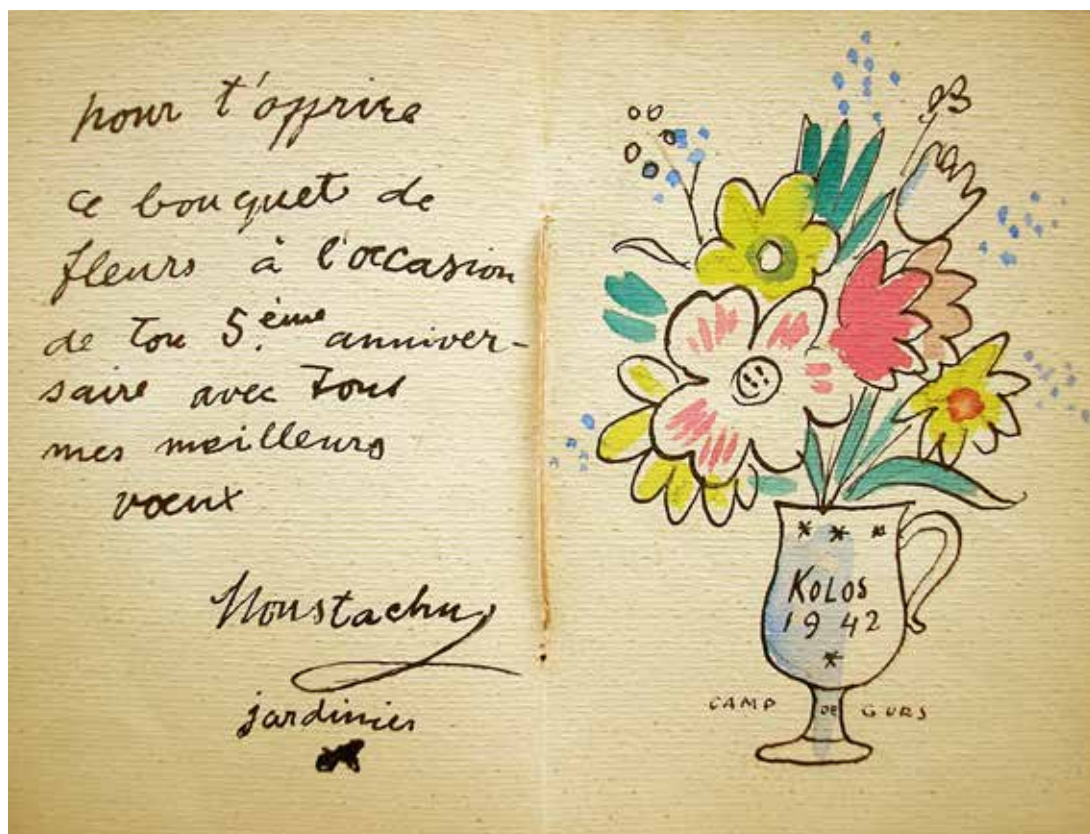 pour t'offrire
ce bouquet de
fleurs à l'occasion
de ton 5.ème anniver-
saire avec tous
mes meilleurs
voeux
Moustachu
jardinier
KOLOS
1942
CAMP DE GURS